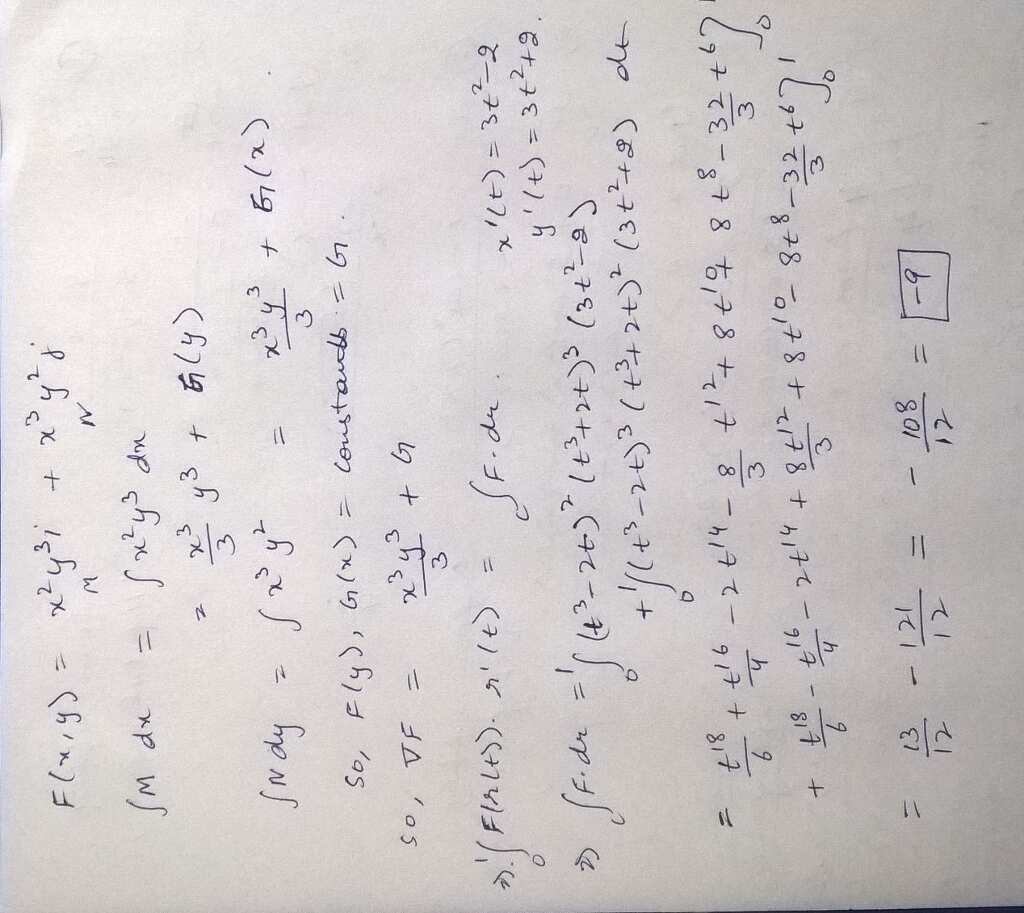 F(x,y) = x²y³i + x³y²j
M N
∫M dx = ∫x²y³ dx
= x³/3 y³ + G(y)
∫N dy = ∫x³y² = x³y³/3 + G(x).
So, F(y), G(x) = constants = G.
so, ∇F = x³y³/3 + G
⇒ ₀∫¹ F(r(t)). r'(t) = ∫_C F.dr. x'(t) = 3t²-2
y'(t) = 3t²+2.
⇒ ∫_C F.dr = ₀∫¹ (t³-2t)² (t³+2t)³ (3t²-2)
+ ₀∫¹ (t³-2t)³ (t³+2t)² (3t²+2) dt
= t¹⁸/6 + t¹⁶/4 - 2t¹⁴ - 8/3 t¹² + 8t¹⁰ + 8t⁸ - 32/3 t⁶]₀¹
+ t¹⁸/6 - t¹⁶/4 - 2t¹⁴ + 8t¹²/3 + 8t¹⁰ - 8t⁸ - 32/3 t⁶]₀¹
= 13/12 - 121/12 = - 108/12 = -9